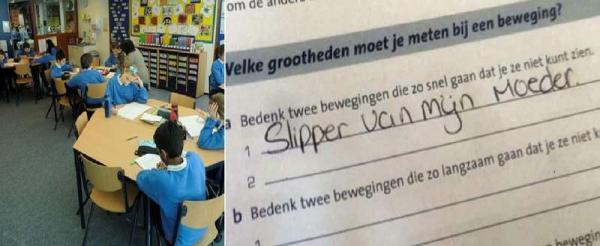 om de ander
Welke grootheden moet je meten bij een beweging?
a Bedenk twee bewegingen die zo snel gaan dat je ze niet kunt zien.
1 Slipper van mijn Moeder.
2
b Bedenk twee bewegingen die zo langzaam gaan dat je ze niet k
1
bewegin